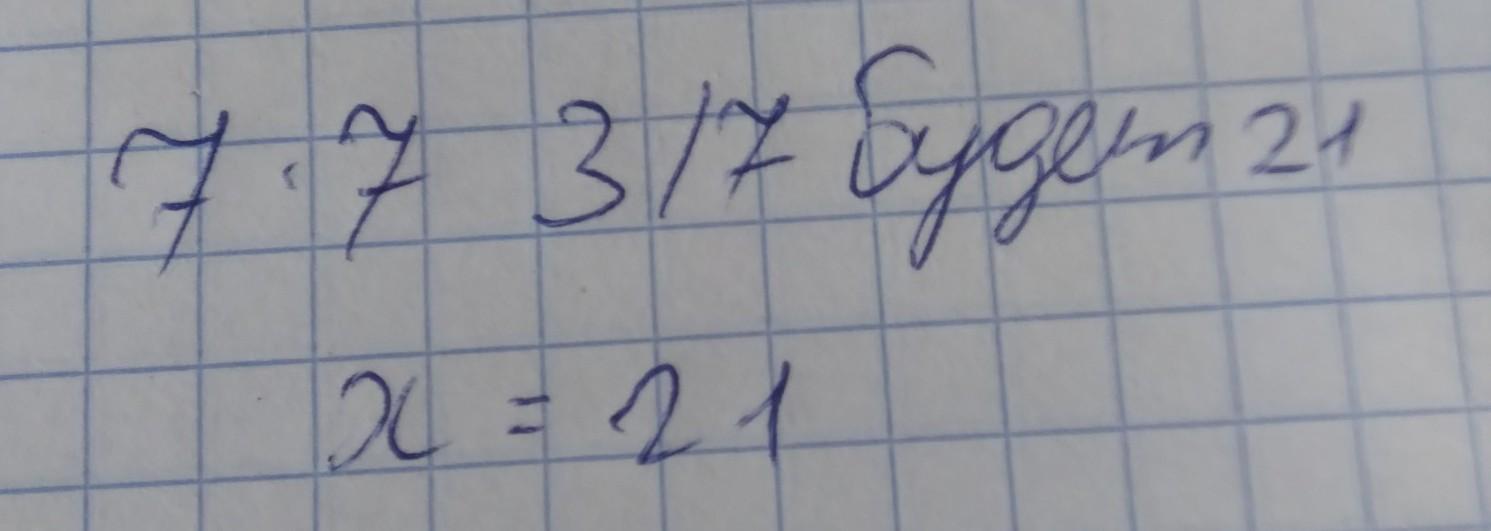 7 · 7 3/7 будет 21
x = 21